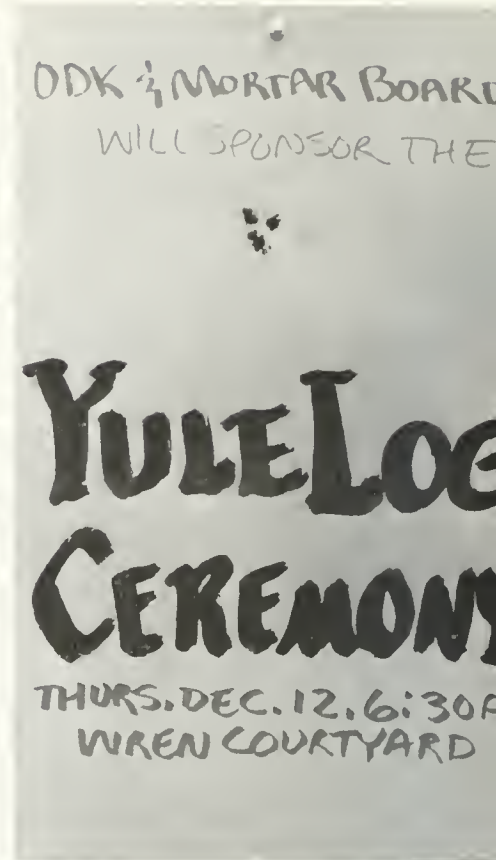 ODK & MORTAR BOARD
WILL SPONSOR THE
YULE LOG
CEREMONY
THURS. DEC. 12. 6:30P
WREN COURTYARD